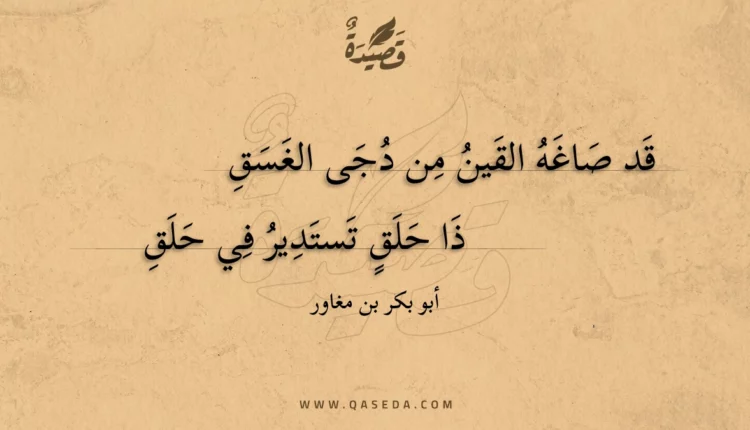 قَصِيدَةٌ
قَد صَاغَهُ القَينُ مِن دُجَى الغَسَقِ
ذَا حَلَقٍ تَستَدِيرُ فِي حَلَقِ
أبو بكر بن مغاور
WWW.QASEDA.COM